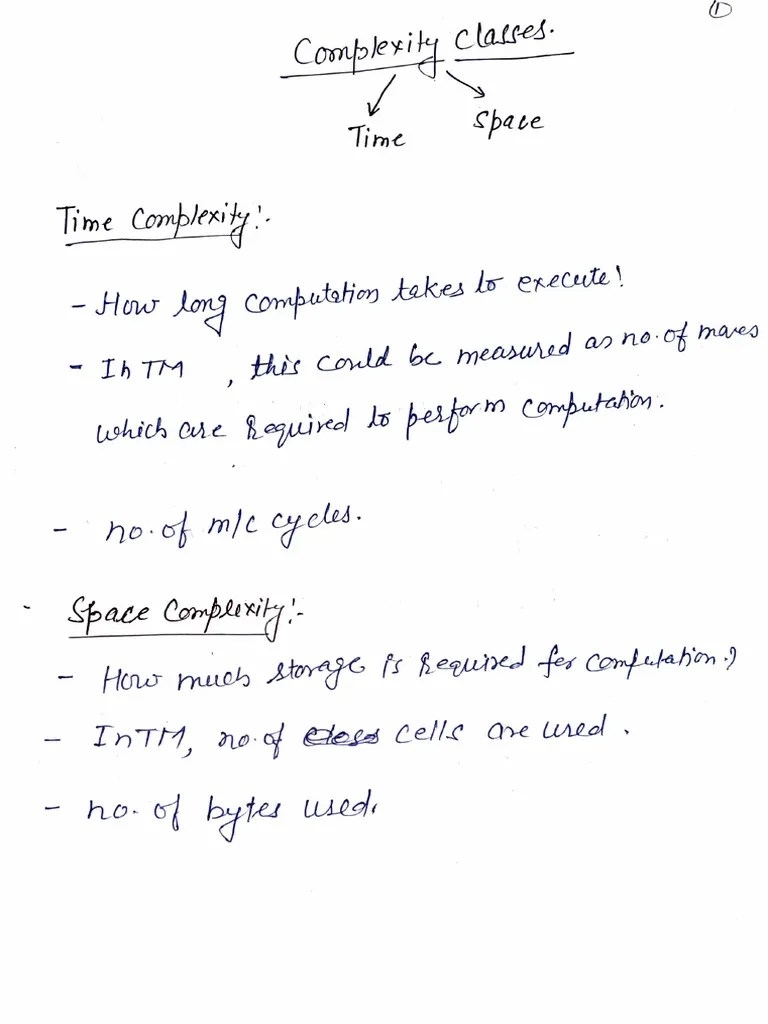 ①
Complexity Classes.
Time Space
Time Complexity:-
- How long computation takes to execute!
- In TM , this could be measured as no. of moves
which are required to perform computation.
- no. of m/c cycles.
- Space Complexity:-
- How much storage is required for computation?
- In TM, no. of cells are used.
- no. of bytes used.